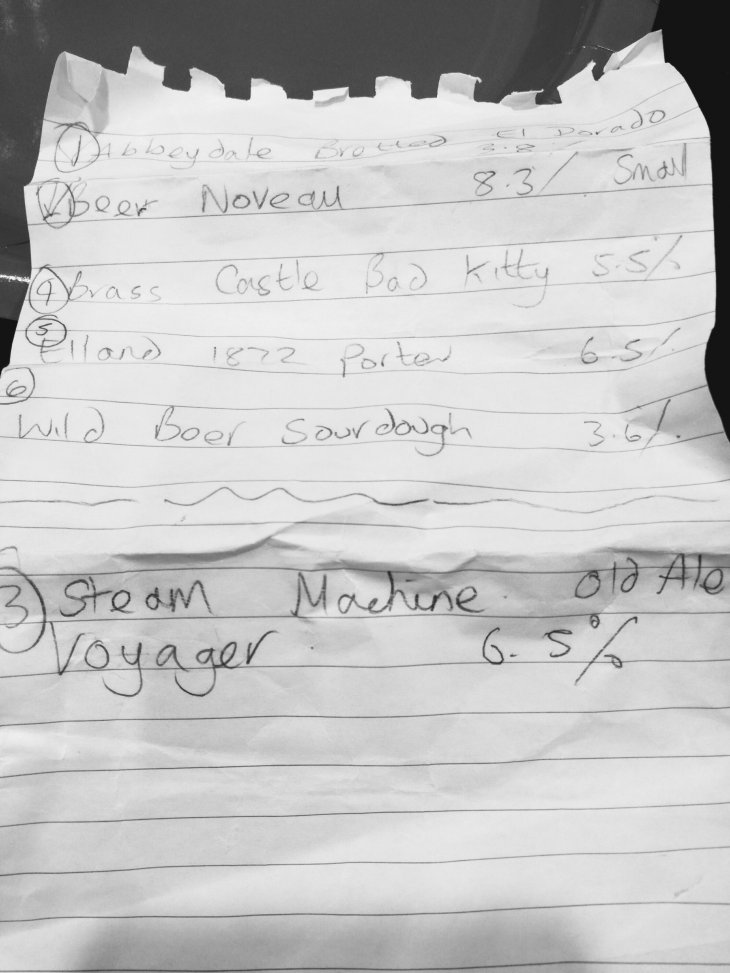 ① Abbeydale Bretted El Dorado
3.8
② Beer Noveau 8.3/ Small
④ Brass Castle Bad Kitty 5.5%
⑤
Elland 1872 Porter 6.5%
⑥
Wild Beer Sourdough 3.6%
③ Steam Machine Old Ale
Voyager 6.5%